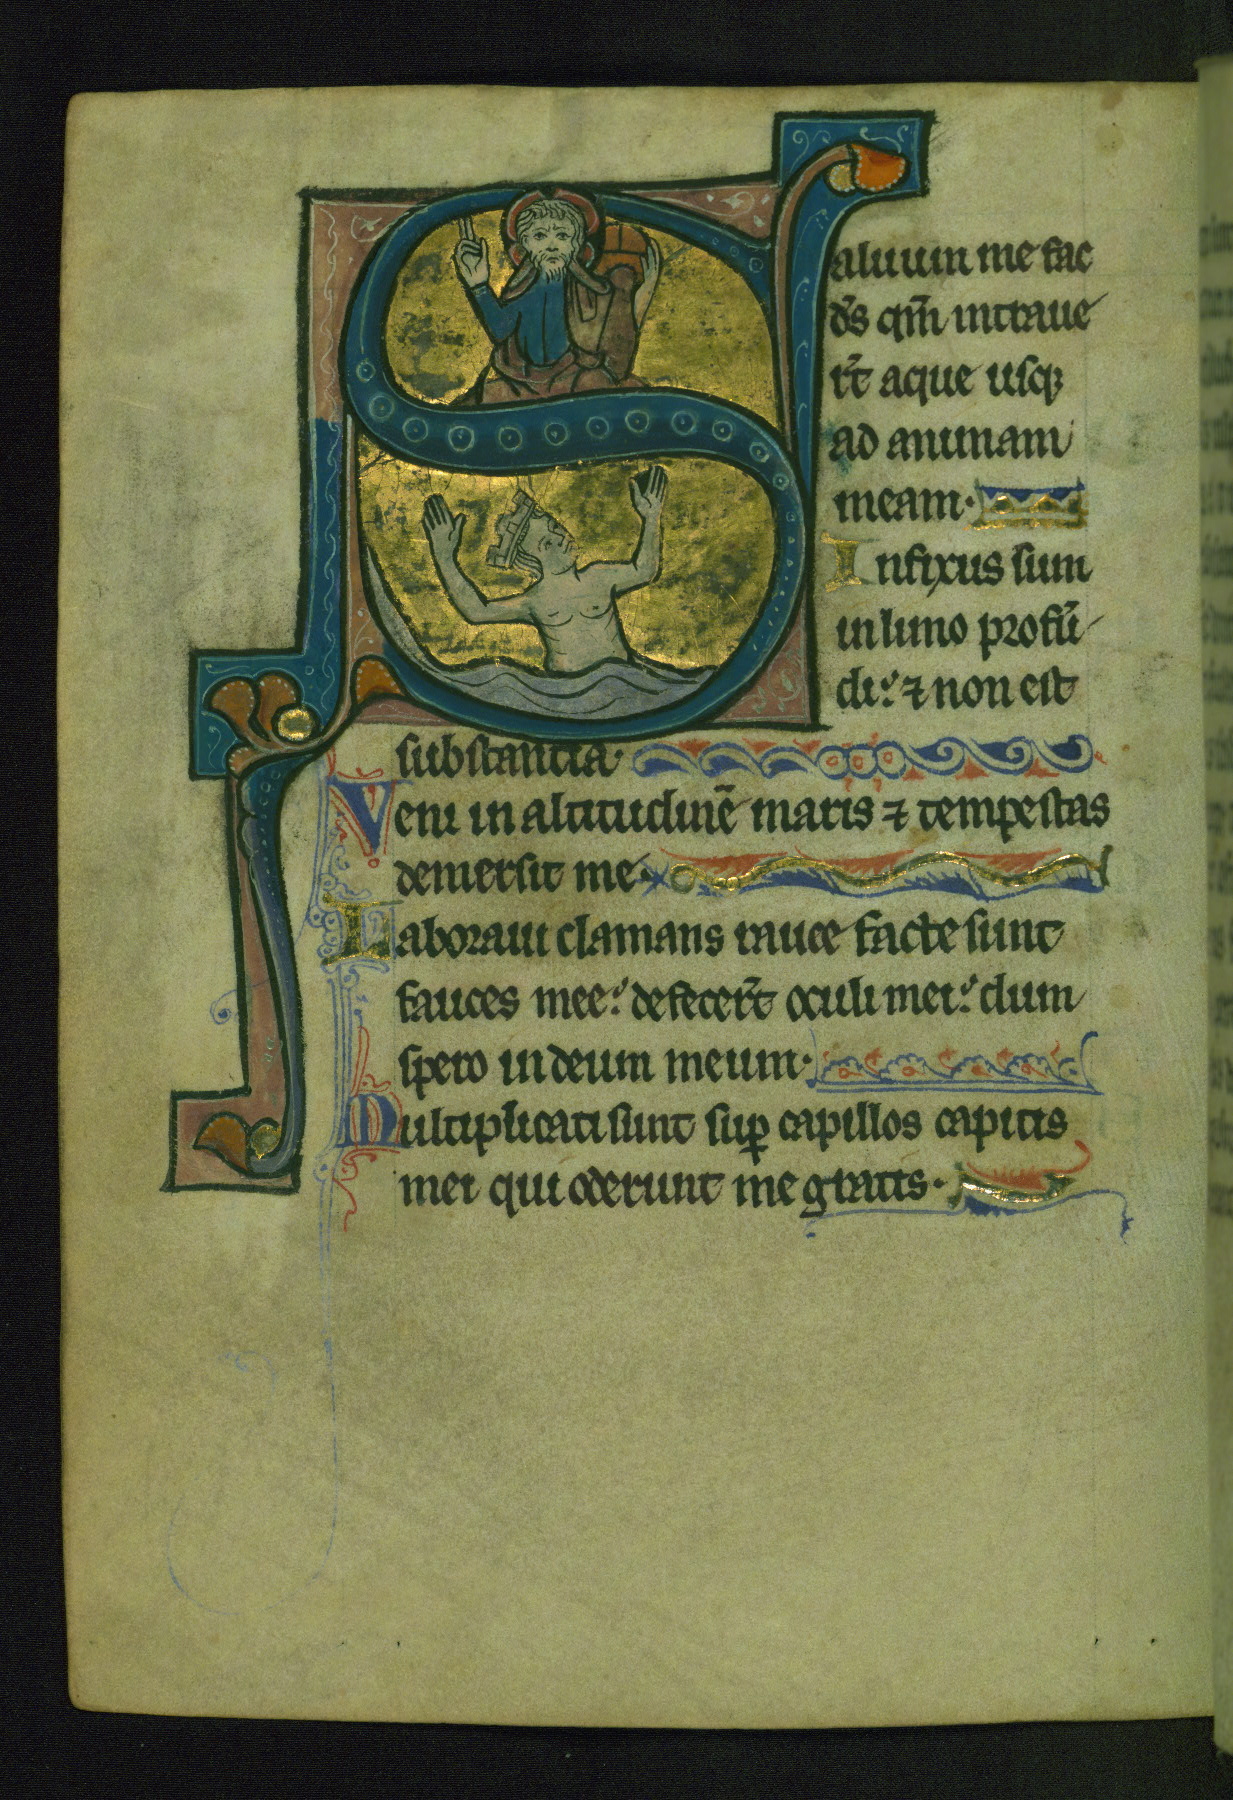 Saluum me fac
d̄s qm̄ intraue
rt̄ aque usq;
ad animam
meam.
Infixus sum
in limo profū
di: ⁊ non est
substantia.
Veni in altitudinē maris ⁊ tempestas
demersit me.
Laboraui clamans rauce facte sunt
fauces mee: defecer̄t oculi mei: dum
spero in deum meum.
Multiplicati sunt sup̄ capillos capitis
mei qui oderunt me gratis.